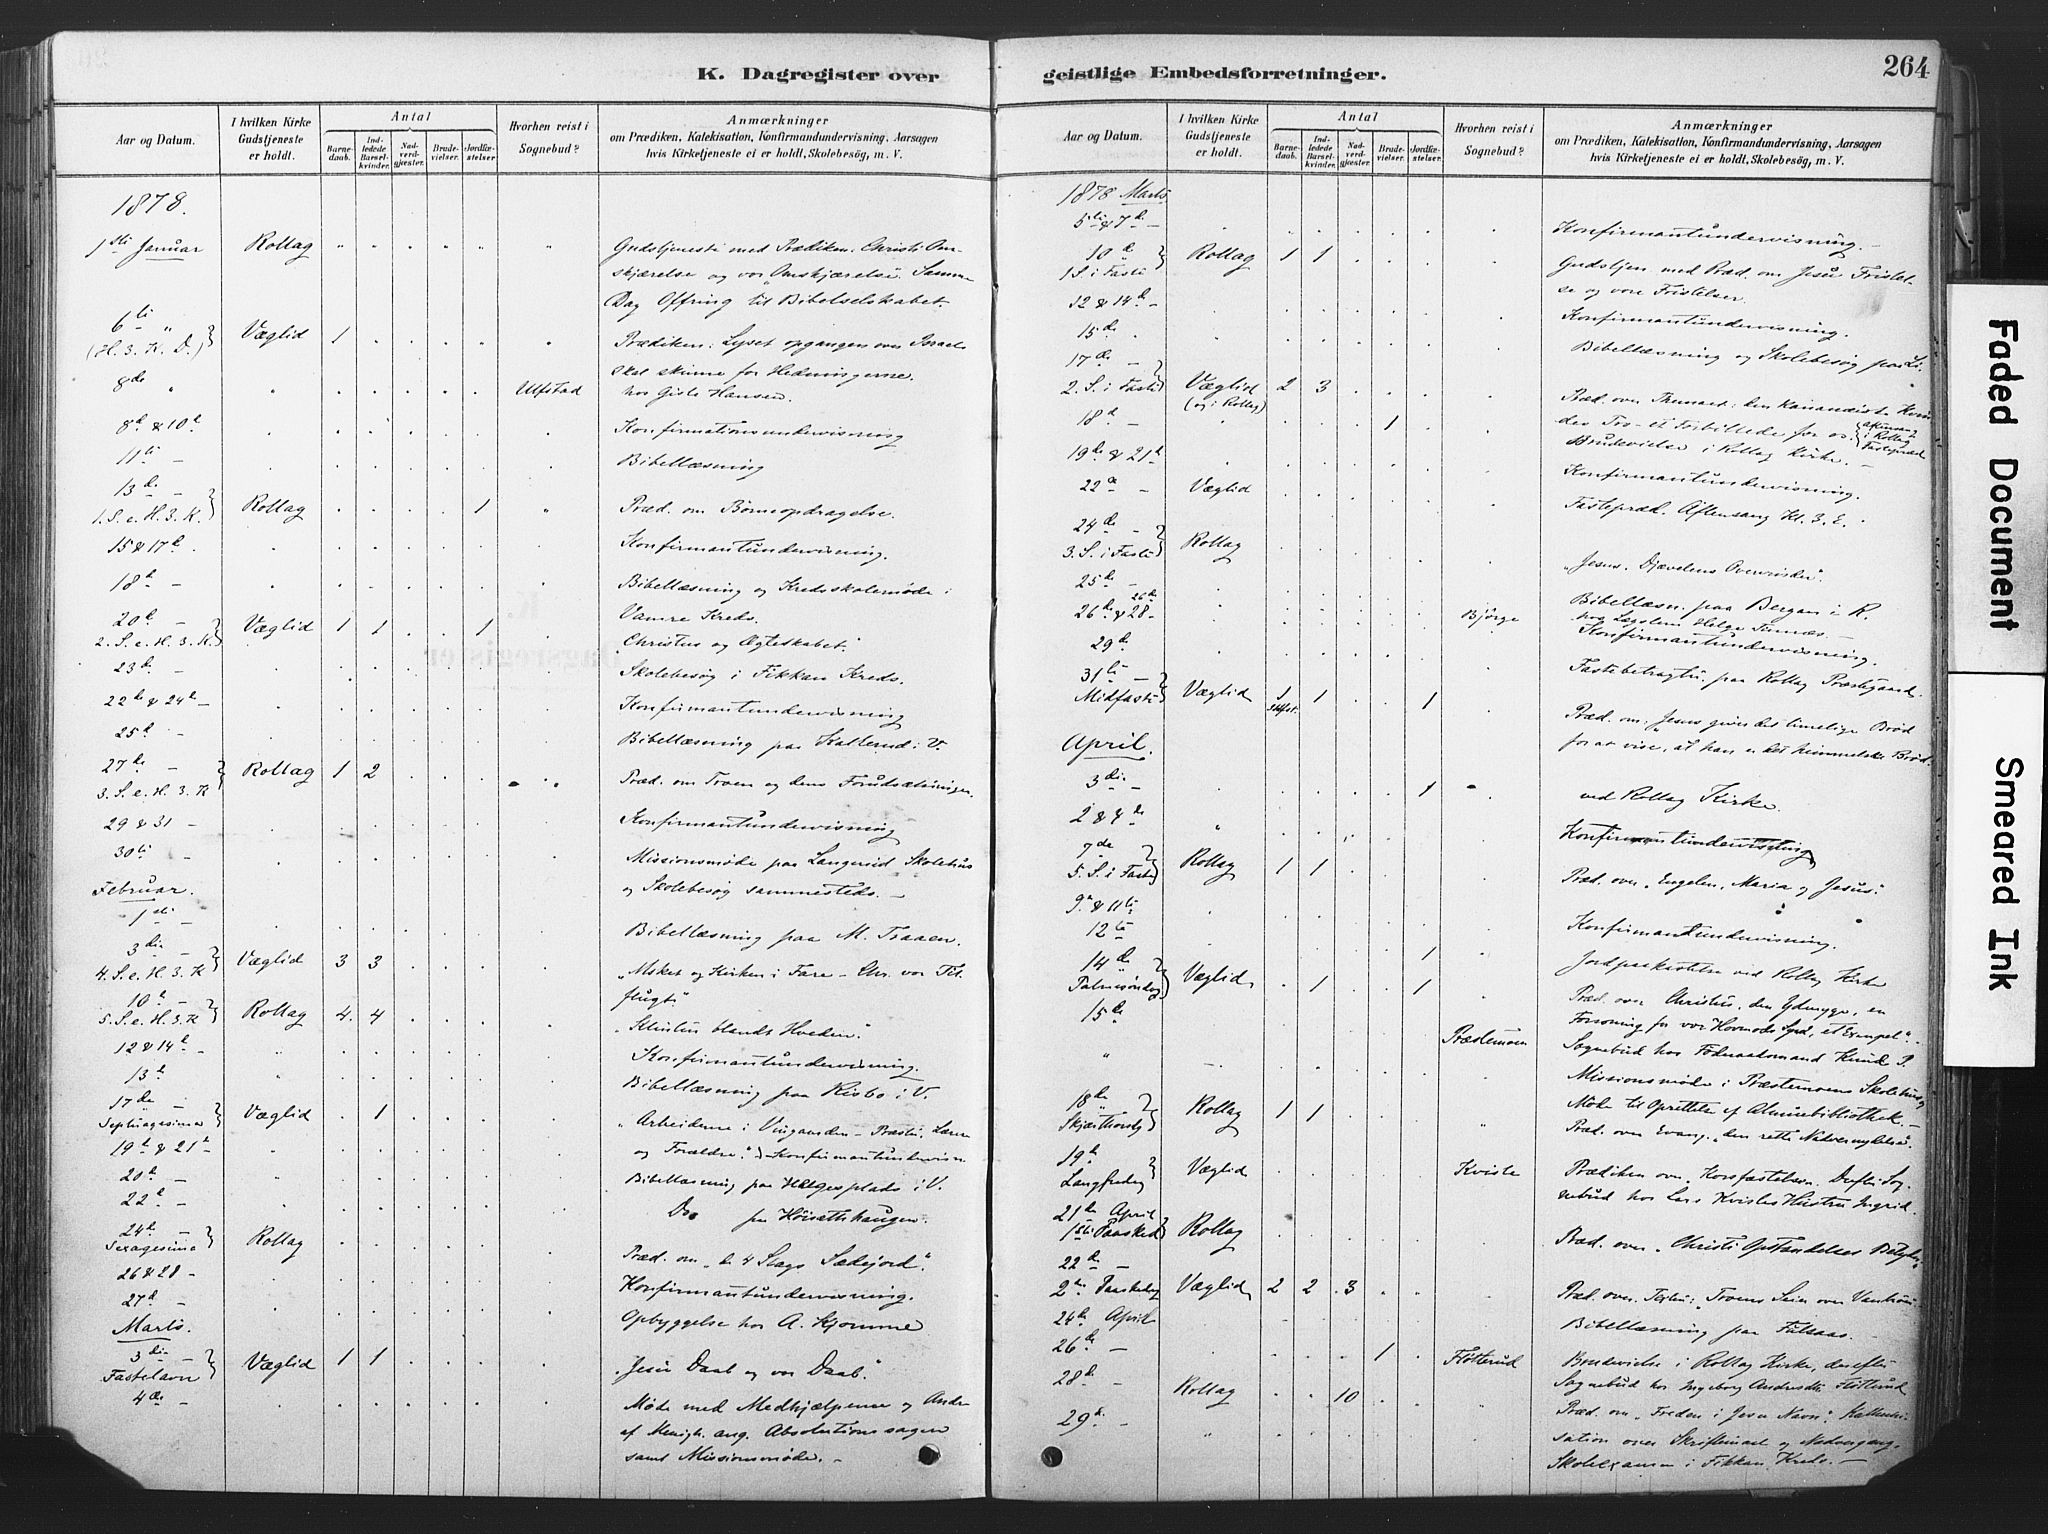 K. Dagregister over
Aar og Datum.
I hvilken Kirke Gudstjeneste er holdt.
Antal
Barnedaab.
Indledede Barselkvinder.
Nadverdgjester.
Brudevielser.
Jordfæstelser
Hvorhen reist i Sognebud?
Anmærkninger
om Prædiken, Katekisation, Konfirmandundervisning, Aarsagen
hvis Kirketjeneste ei er holdt, Skolebesög, m. V.
1878.
1ste Januar Rollag Gudstjeneste med Prædiken. Christi Om-
skjærelse og vor Omskjærelse. Samme
Dag Offring til Bibelselskabet.
6te "
(H. 3. K. D.) Væglid 1 Prædiken: Lyset opgangen over Israel
skal skinne for Hedningerne.
8de " Ulfstad hos Gisle Hansen.
8d & 10d Konfirmationsundervisning
11te - Bibellæsning
13de -
1. S. e. H. 3. K. Rollag 1 Præd. om Børneopdragelse.
15 & 17d Konfirmantundervisning.
18d - Bibellæsning og Kredsskolemøde i
Vamre Kreds.
20d -
2. S. e. H. 3. K. Væglid 1 1 1 "Christus og Ægteskabet"
23d - Skolebesøg i Fikkan Kreds.
22de & 24de - Konfirmantundervisning
25d - Bibellæsning paa Kallerud i V.
27de -
3. S. e. H. 3. K Rollag 1 2 Præd. om Troen og dens Forudsætninger.
29 & 31 - Konfirmantundervisning
30te - Missionsmøde paa Langerud Skolehus
og Skolebesøg sammesteds. -
Februar.
1ste - Bibellæsning paa M. Traaen.
3die -
4. S. e. H. 3. K Væglid 3 3 "Mskct og Kirken i Fare - Chr. vor Til-
flugt."
10d -
5. S. e. H. 3. K Rollag 4 4 "Klinten blandt Hveden".
12 & 14d - Konfirmantundervisning.
13d - Bibellæsning paa Risbo i V.
17de -
Septuagesima Væglid 1 "Arbeiderne i Vingaarden - Præst, Lærer
og Forældre."
19d & 21d Konfirmantundervisn
20d - Bibellæsning paa Helgesplads i V.
22d - Do paa Høisæthaugen.
24de -
Sexagesima Rollag Præd. om "de 4 Slags Sædejord".
26 & 28 - Konfirmantundervisning.
27d - Opbyggelse hos A. Kjomme
Marts.
3die -
Fastelavn Væglid 1 1 "Jesu Daab og vor Daab."
4de - Møde med Medhjælperne og Andre
af Menigh. ang. Absolutionssagen
samt Missionsmøde. -
geistlige Embedsforretninger.
264
Aar og Datum.
I hvilken Kirke Gudstjeneste er holdt.
Antal
Barnedaab.
Indledede Barselkvinder.
Nadverdgjester.
Brudevielser.
Jordfæstelser.
Hvorhen reist i Sognebud?
Anmærkninger
om Prædiken, Katekisation, Konfirmandundervisning, Aarsagen
hvis Kirketjeneste ei er holdt, Skolebesög, m. V.
1878 Marts
5te & 7d - Konfirmantundervisning. -
10d
1 S. i Faste Rollag 1 1 Gudstjen. med Præd. om Jesu Fristel-
se og vore Fristelser.
12 & 14d - Konfirmantundervisning.
15de Bibellæsning og Skolebesøg paa
17de -
2. S. i Faste Væglid (og i Rollag) 2 3 Præd. over Themaet: den kananæiske Kvin
des Tro - et Forbillede for os. Aftensang i Rollag Fastepræd
18d - 1 Brudevielse i Rollag Kirke. -
19de & 21d Konfirmantundervisning.
22d - Væglid Fastepræd. Aftensang Kl. 3 E.
24de -
3. S. i Faste Rollag "Jesus. Djævelens Overvinder".
25de - Bibellæsn. paa Bergan i R.
26de & 28 - 26de Bjørge hos Lægslem Helge
Konfirmantundervisning.
29d Fastebetragtn. paa Rollag Præstegaard.
31te -
Midfaste Væglid 1 1 1 Præd. om: "Jesus giver det timelige Brød
for at vise, at han er det himmelske Brød.
April.
3die - 1 ved Rollag Kirke.
2 & 4de Konfirmantundervisning
7de
5. S. i Faste Rollag 1 1 Præd. over "Engelen, Maria og Jesus."
9d & 11te Konfirmantundervisning.
12te 1 Jordpaakastelse ved Rollag Kirke
14de
Palmesøndag Væglid 1 1 Præd. over Christus, den Ydmyge, en
Forsoning for vor Hovmods Synd, et Exempel". -
15de Præstemoen Sognebud hos Føderaadsmand Knud P.
" - Missionsmøde i Præstemoens Skolehus og
Møde til Oprettelse af Almuebibliothek. -
18de
Skjærthorsdg Rollag 1 1 Præd. over Evang. "den rette Nadverenydelse".
19d
Langfredag Væglid Kviste Prædiken over Korsfæstelsen. Derefter Sog-
nebud hos Lars Kvistes Hustru Ingrid.
21de April
1ste Paasked Rollag Præd. over "Christi Opstandelses Betydn."
22de -
2den Paaskedag Væglid 2 2 3 Præd. over Texten: "Troens Seier over Vantroen
24d April Bibellæsning paa Fulsaas. -
26de - 1 Fløtterud Brudevielse i Rollag Kirke, derefter
Sognebud hos Ingeborg Andresdtr. Fløtterud
28de - Rollag 10 Præd. om "Freden i Jesu Navn". Kateki-
sation over Skriftemaal og Nadvergang.
29d - Skoleexamen i Fikkan Kreds. -
Faded Document
Smeared Ink